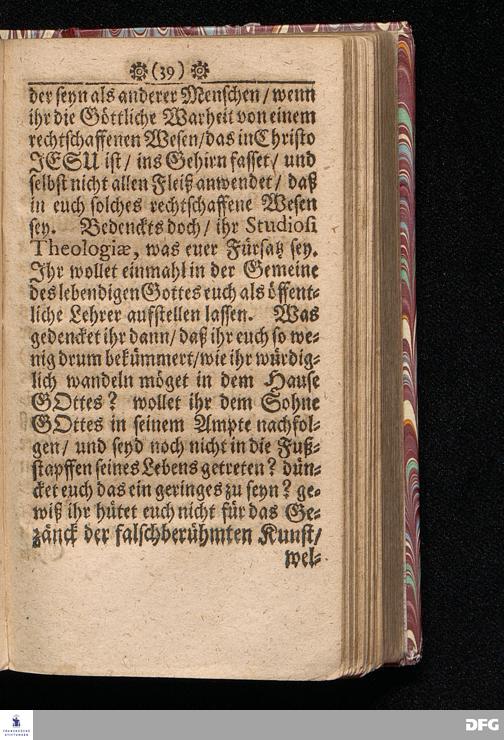 (39)
der seyn als anderer Menschen / wenn
ihr die Göttliche Warheit von einem
rechtschaffenen Wesen / das in Christo
JESU ist / ins Gehirn fasset / und
selbst nicht allen Fleiß anwendet / daß
in euch solches rechtschaffene Wesen
sey. Bedenckts doch / ihr Studiosi
Theologiæ, was euer Fürsatz sey.
Ihr wollet einmahl in der Gemeine
des lebendigen Gottes euch als öffent-
liche Lehrer aufstellen lassen. Was
gedencket ihr dann / daß ihr euch so we-
nig drum bekümmert / wie ihr würdig-
lich wandeln möget in dem Hause
GOttes? wollet ihr dem Sohne
GOttes in seinem Ampte nachfol-
gen / und seyd noch nicht in die Fuß-
stapffen seines Lebens getreten? dün-
cket euch das ein geringes zu seyn? ge-
wiß ihr hütet euch nicht für das Ge-
zänck der falschberühmten Kunst /
wel-
FRANCKESCHE
STIFTUNGEN
DFG